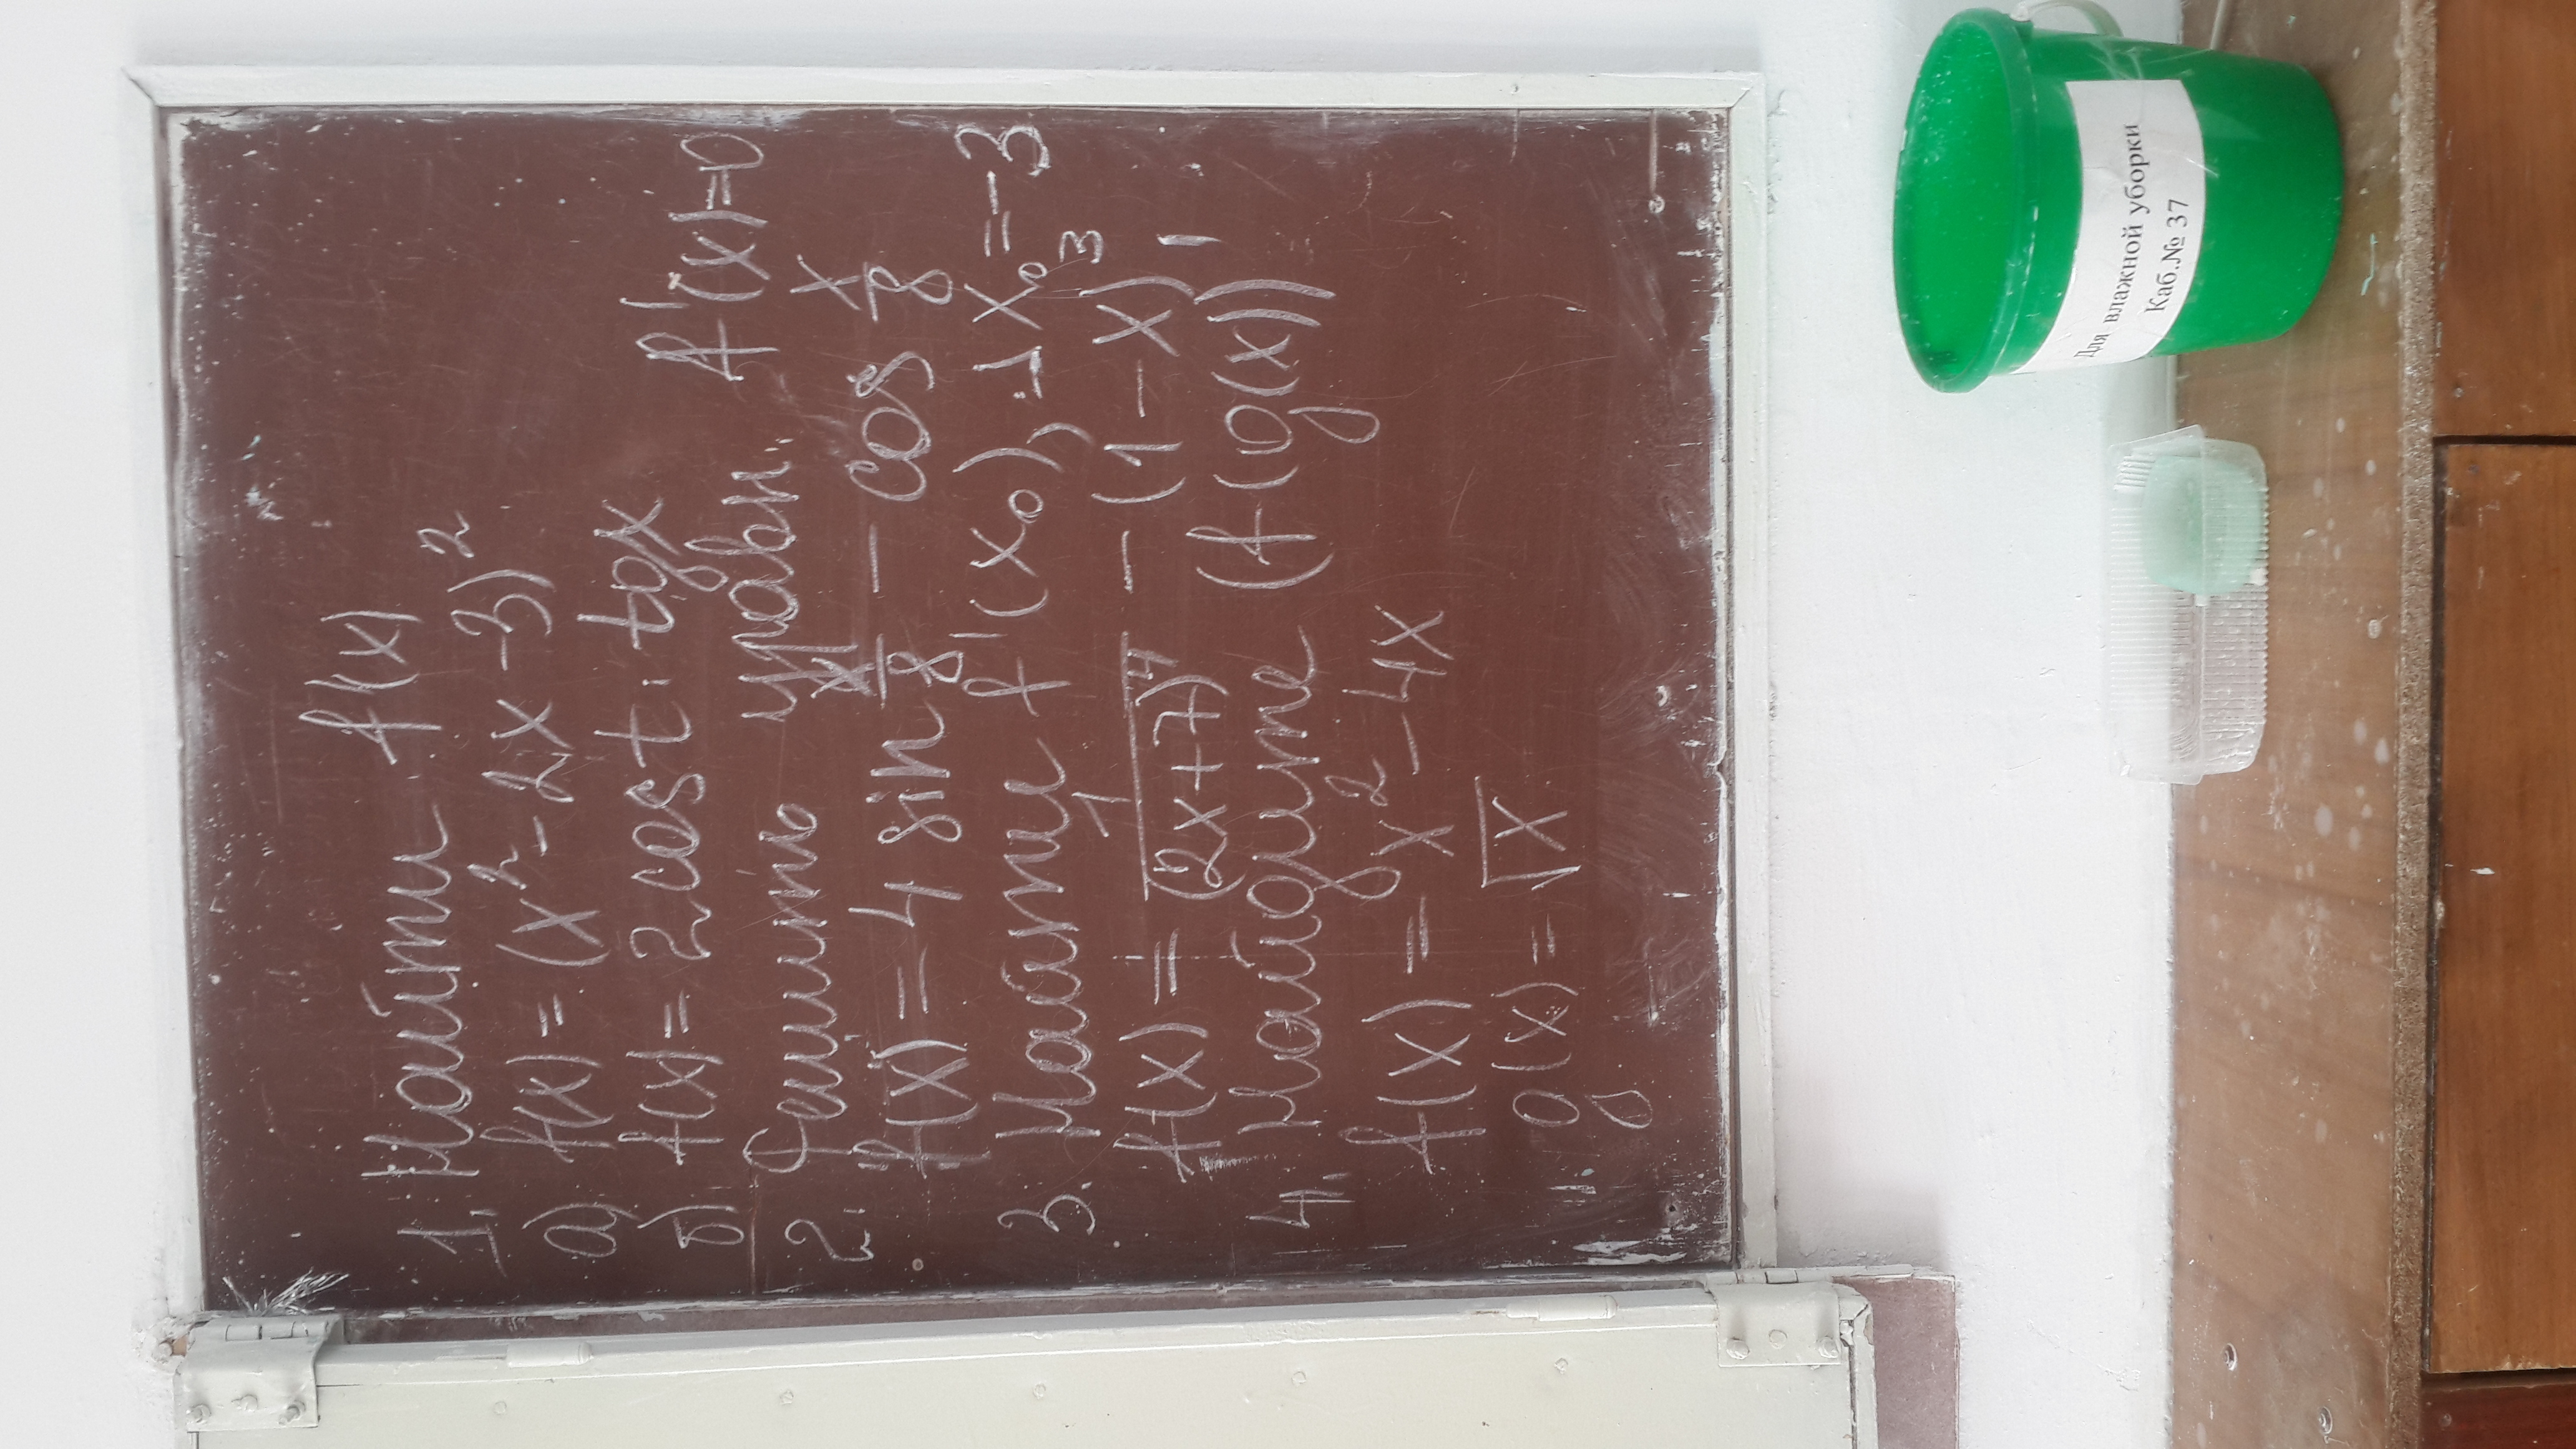 1. Найти f'(x)
а) f(x) = (x² - 2x - 3)²
б) f(x) = 2 cos t · tgx
2. Решить уравн. f'(x)=0
f(x) = 4 sin x/8 - cos x/8
3. Найти f'(x₀); x₀ = -3
f(x) = 1/(2x+7)⁴ - (1-x)³
4. Найдите (f(g(x)))'
f(x) = x² - 4x
g(x) = √x
Для влажной уборки
Каб.№ 37